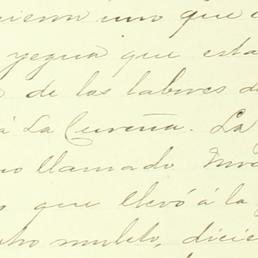 uno que
yegua que esta
de las labores de
á La Cureña. La
llamado
que llevó á la
mulato, dicie